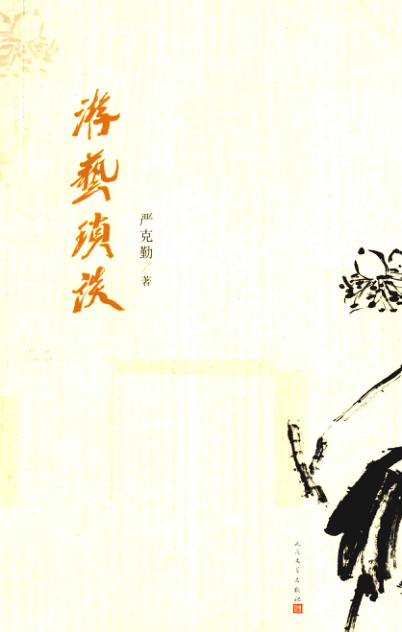 游藝瑣談
严克勤／著
人民文学出版社